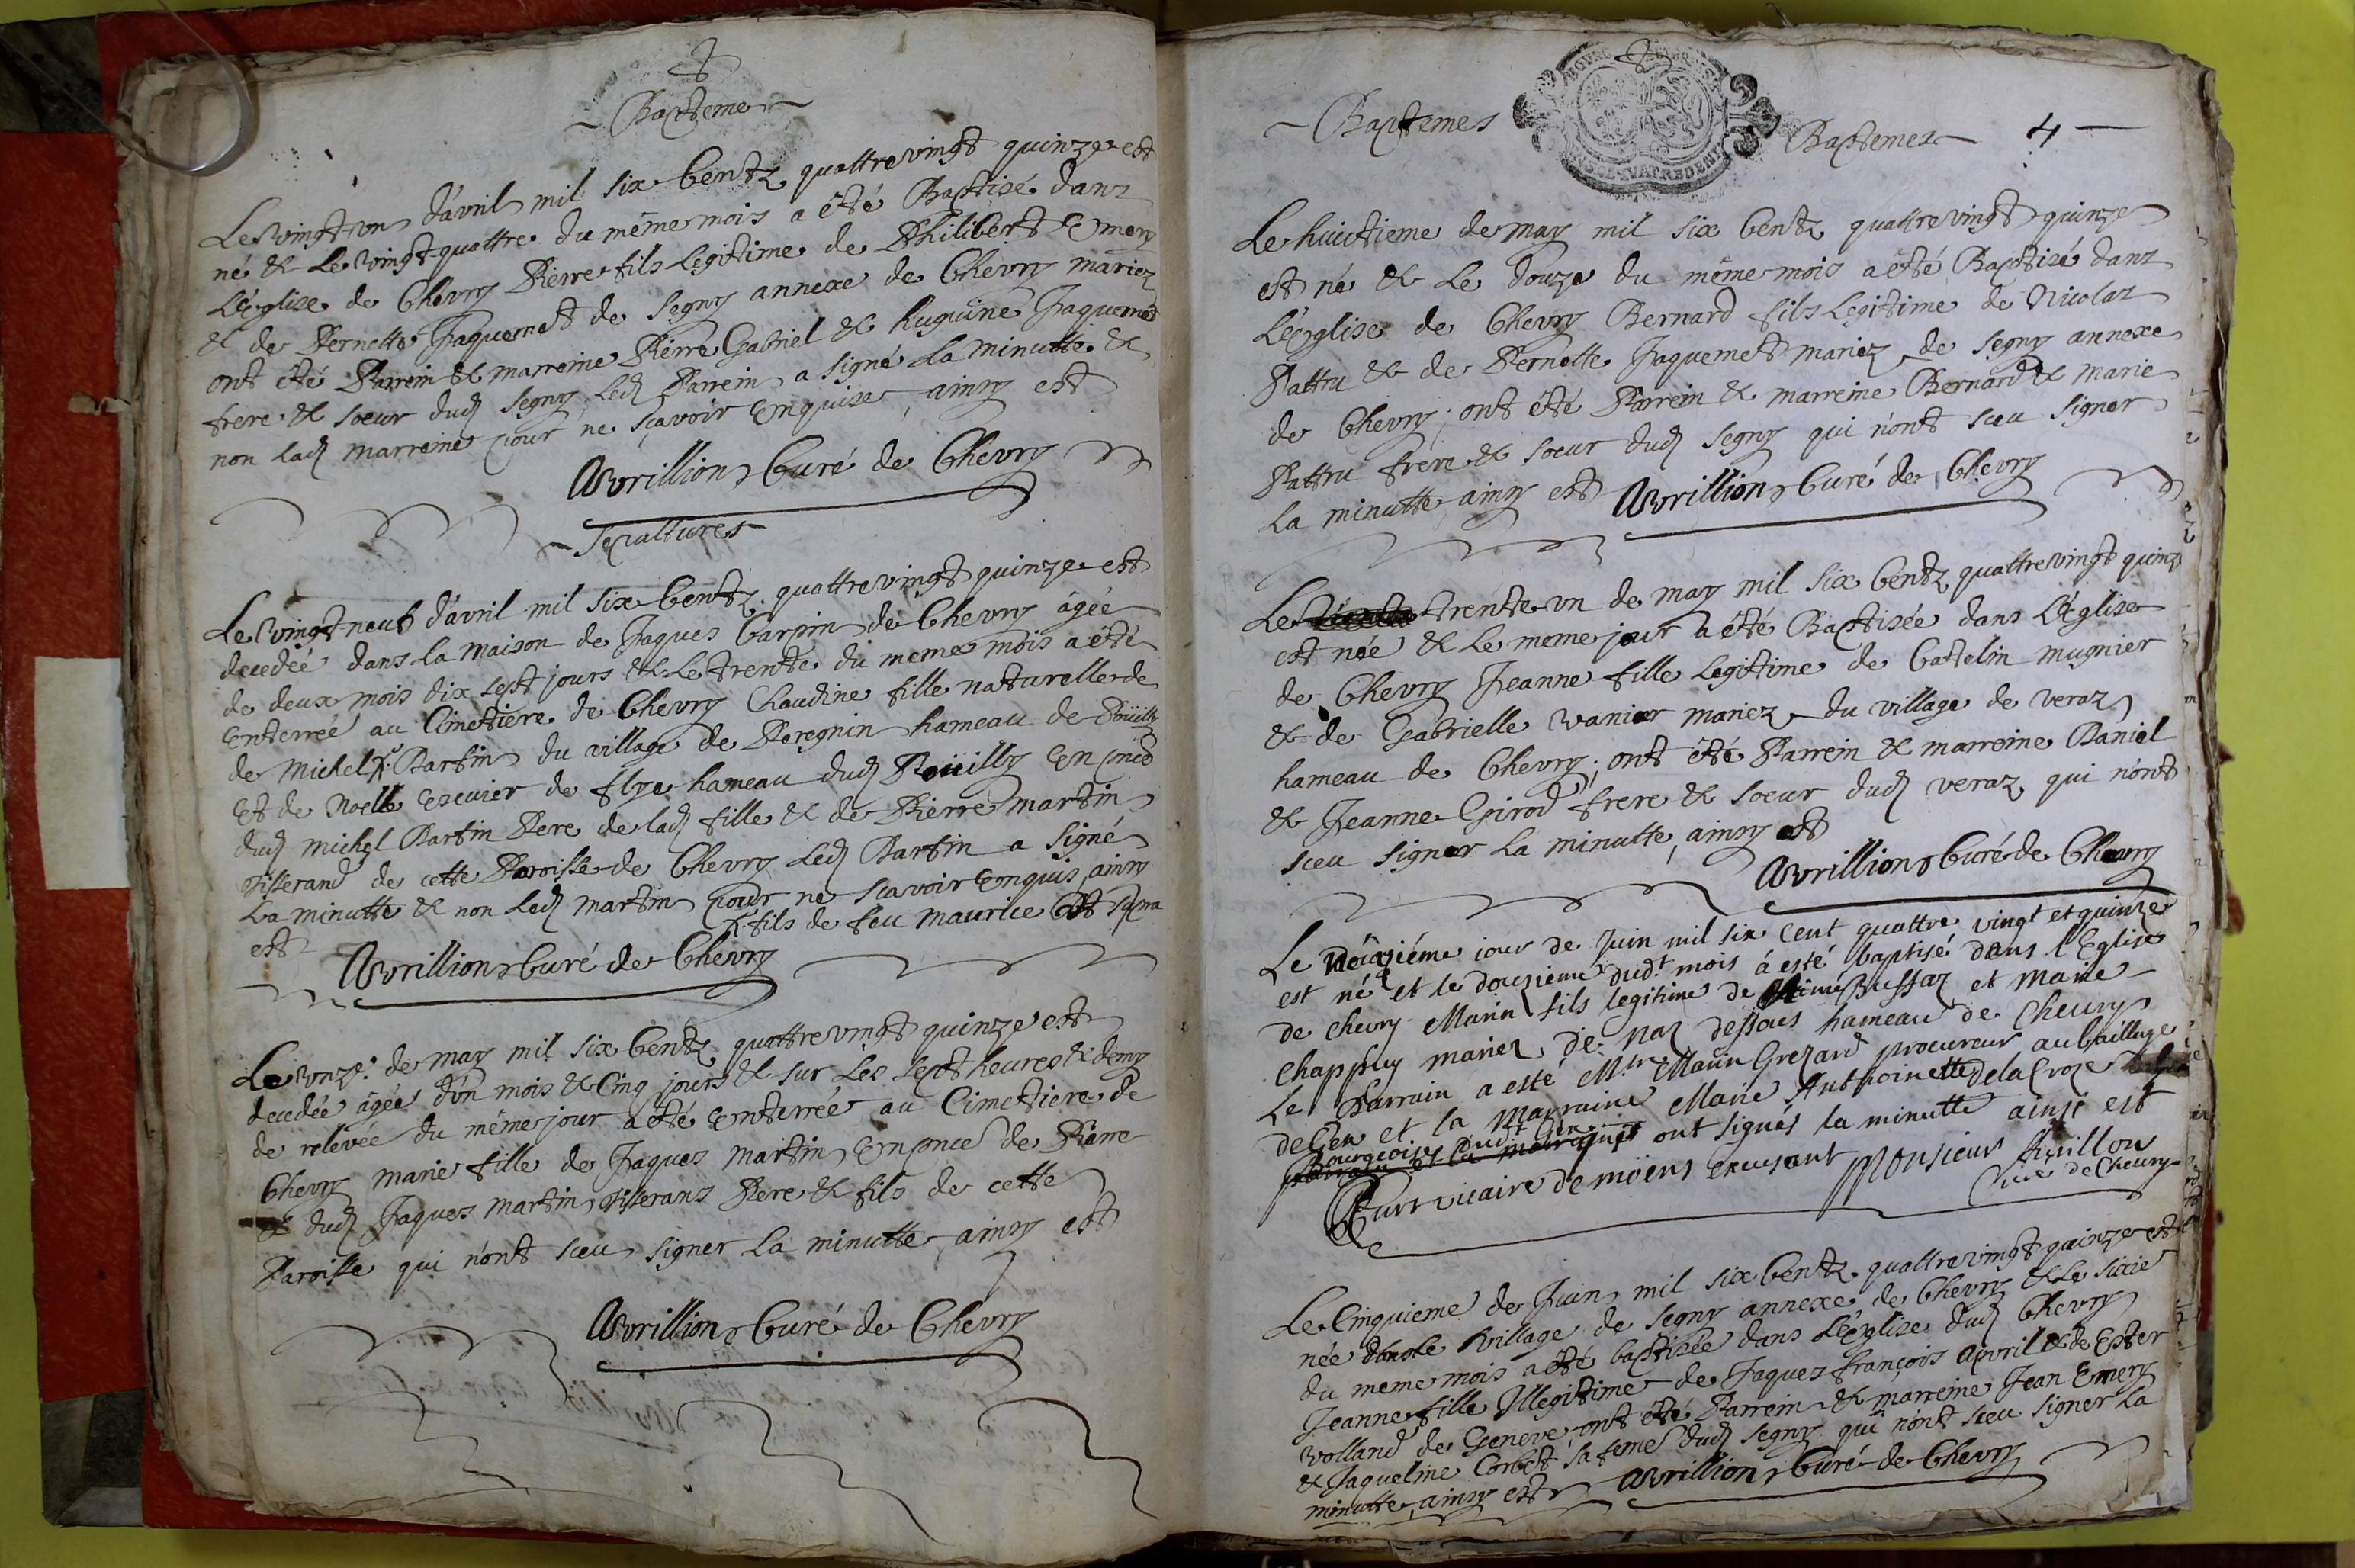 Bapteme
Le vingt un d'avril mil six Centz quattre vingt quinze est
né & le vingt quattre du même mois a été Baptisé dans
L'église de Chevry Pierre fils legitime de Philibert Emery
& de Pernette Jaquemet de Segny annexe de Chevry mariez
ont été Parrein & marreine Pierre Gabriel & huguine Jaquemet
frere & soeur dud Segny Led Parrein a signé La minutte &
non lad marreine pour ne sçavoir Enquise, ainsy est
Avrillion Curé de Chevry
Sepultures
Le vingt neuf d'avril mil six Centz quattre vingt quinze est
decedée dans La maison de Jaques Carpin de Chevry âgée
de deux mois dix sept jours & Le trente du meme mois a été
Enterrée au Cimetiere de Chevry Claudine fille naturelle de
de Michel Bartin du village de Peregnin hameau de Poüilly
Et de Noelle Escuier de flye hameau dud Poüilly En pnce
dud michel Bartin Pere de lad fille & de Pierre martin
tisserand de cette Paroisse de Chevry Led Bartin a signé
La minutte & non Led martin pour ne scavoir Enquis, ainsy
est fils de feu maurice
Avrillion Curé de Chevry
Le onze de may mil six Centz quattre vingt quinze est
decedée âgée d'ûn mois & Cinq jours & sur Les sept heures & demy
de relévée du même jour a été Enterrée au Cimetiere de
Chevry marie fille de Jaques martin En pnce de Pierre
& dud Jaques martin tisserans Pere & fils de cette
Paroisse qui n'ont sceu signer La minutte, ainsy est
Avrillion Curé de Chevry
Baptemes Baptemes 4
Le huictieme de may mil six Centz quattre vingt quinze
est né & Le douze du même mois a été Baptisé dans
L'église de Chevry Bernard fils Legitime de Nicolas
Pattru & de Pernette Jaquemet mariez de Segny annexe
de Chevry; ont été Parrein & marreine Bernard & marie
Pattru frere & soeur dud Segny qui n'ont sceu signer
La minutte, ainsy est Avrillion Curé de Chevry
Le trente un de may mil six Centz quattre vingt quinze
est née & Le meme jour a été Baptisée dans L'église
de Chevry Jeanne fille Legitime de Cattelin mugnier
& de Gabrielle wanier mariez du village de veraz
hameau de Chevry; ont été Parrein & marreine Daniel
& Jeanne Girod frere & soeur dud veraz qui n'ont
sceu signer La minutte, ainsy est
Avrillion Curé de Chevry
Le jour de Juin mil six Cent quattre vingt et quinze
est né et le douzieme dud.t mois à esté baptisé dans l'Eglise
de Chevry Marin fils legitime de Aimé Bussaz et Marie
Chappuy mariez, de Naz dessous hameau de Chevry
Le Parrain a esté M.tre Marin Grezard procureur au bailliage
de Gex et la Marraine Marie Anthoinette Delacroze
bourgeoise dud.t Gex
ont signés la minutte ainsi est
vicaire de moëns excusant Monsieur Avrillion
Curé de Chevry
Le Cinquieme de Juin mil six Centz quattre vingt quinze est
née dans Le village de Segny annexe de Chevry & Le sixie
du meme mois a été baptisée dans L'église dud Chevry
Jeanne fille Illegitime de Jaques françois Apvril & de Ester
wolland de Geneve, ont été Parrein & marreine Jean Emery
& Jaqueline Corbet sa feme dud Segny qui n'ont sceu signer La
minutte, ainsy est Avrillion Curé de Chevry